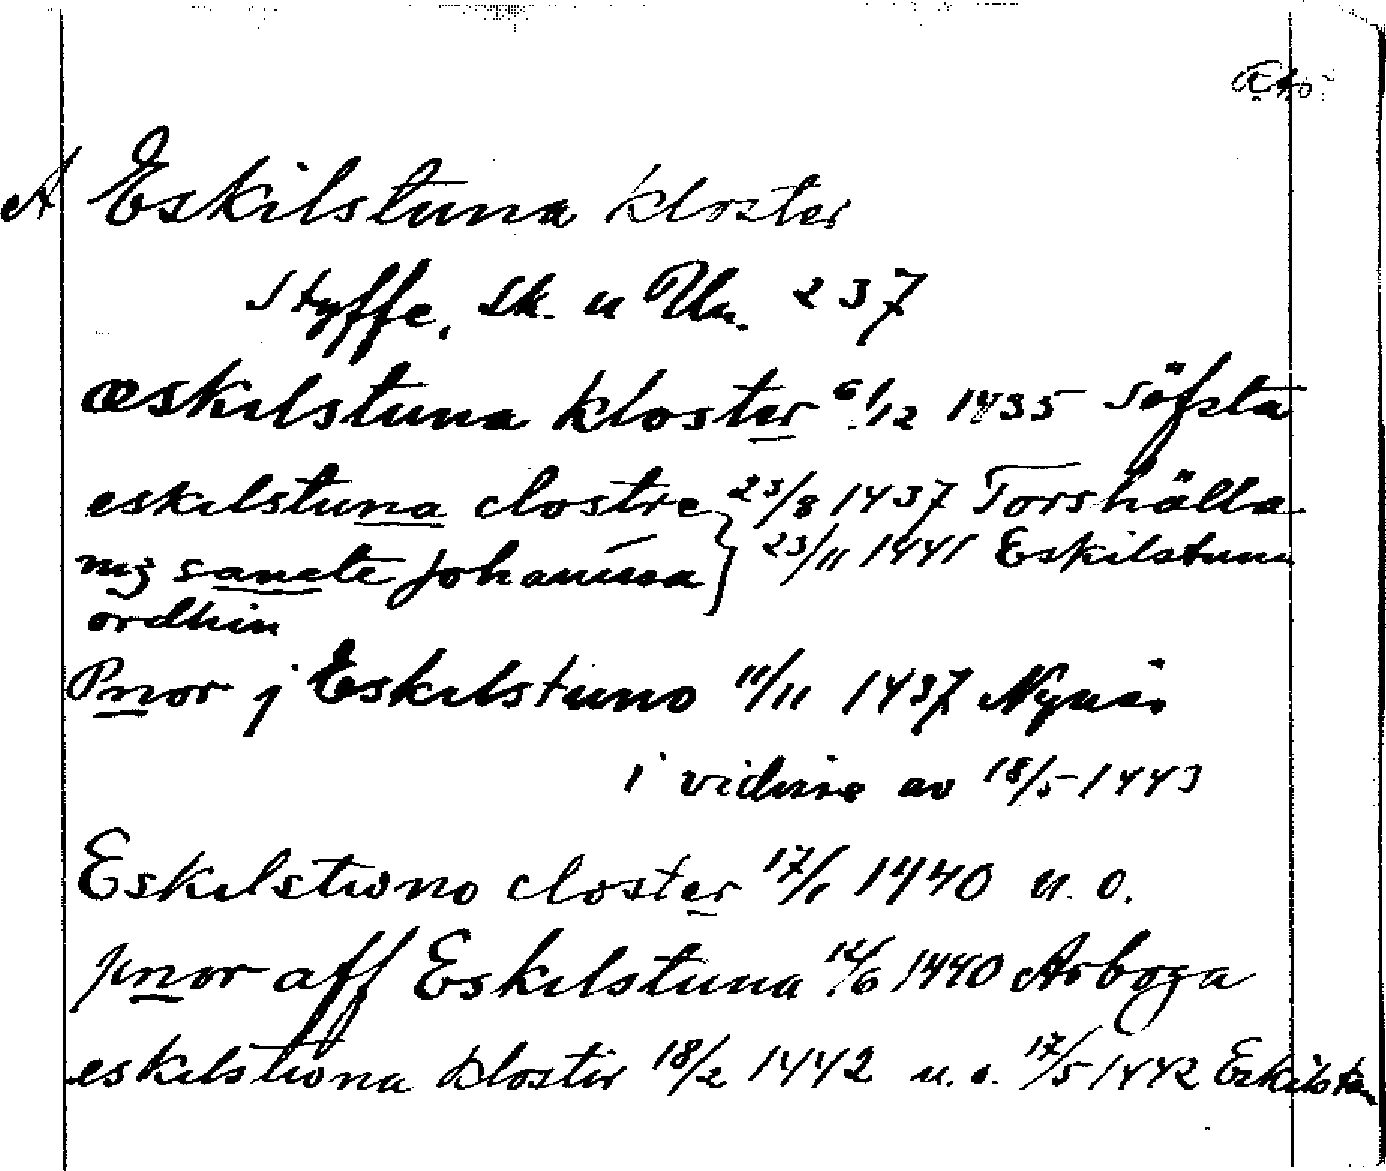 A Eskilstuna kloster
Styffe. Sk. u Un. 237
œskilstuna kloster 6/12 1435 Söfsta
eskilstuna clostre 23/8 1437 Torshälla
mz sancte johannisa 23/11 1441 Eskilstuna
ordhin
Prior j Eskilstuno 11/11 1437 Nynäs
i vidisse av 18/5 1443
Eskilstwno closter 17/1 1440 u. o.
prior aff Eskilstuna 12/6 1440 Arboga
eskilstwna klostir 18/2 1442 u. o. 17/5 1442 Eskilstuna